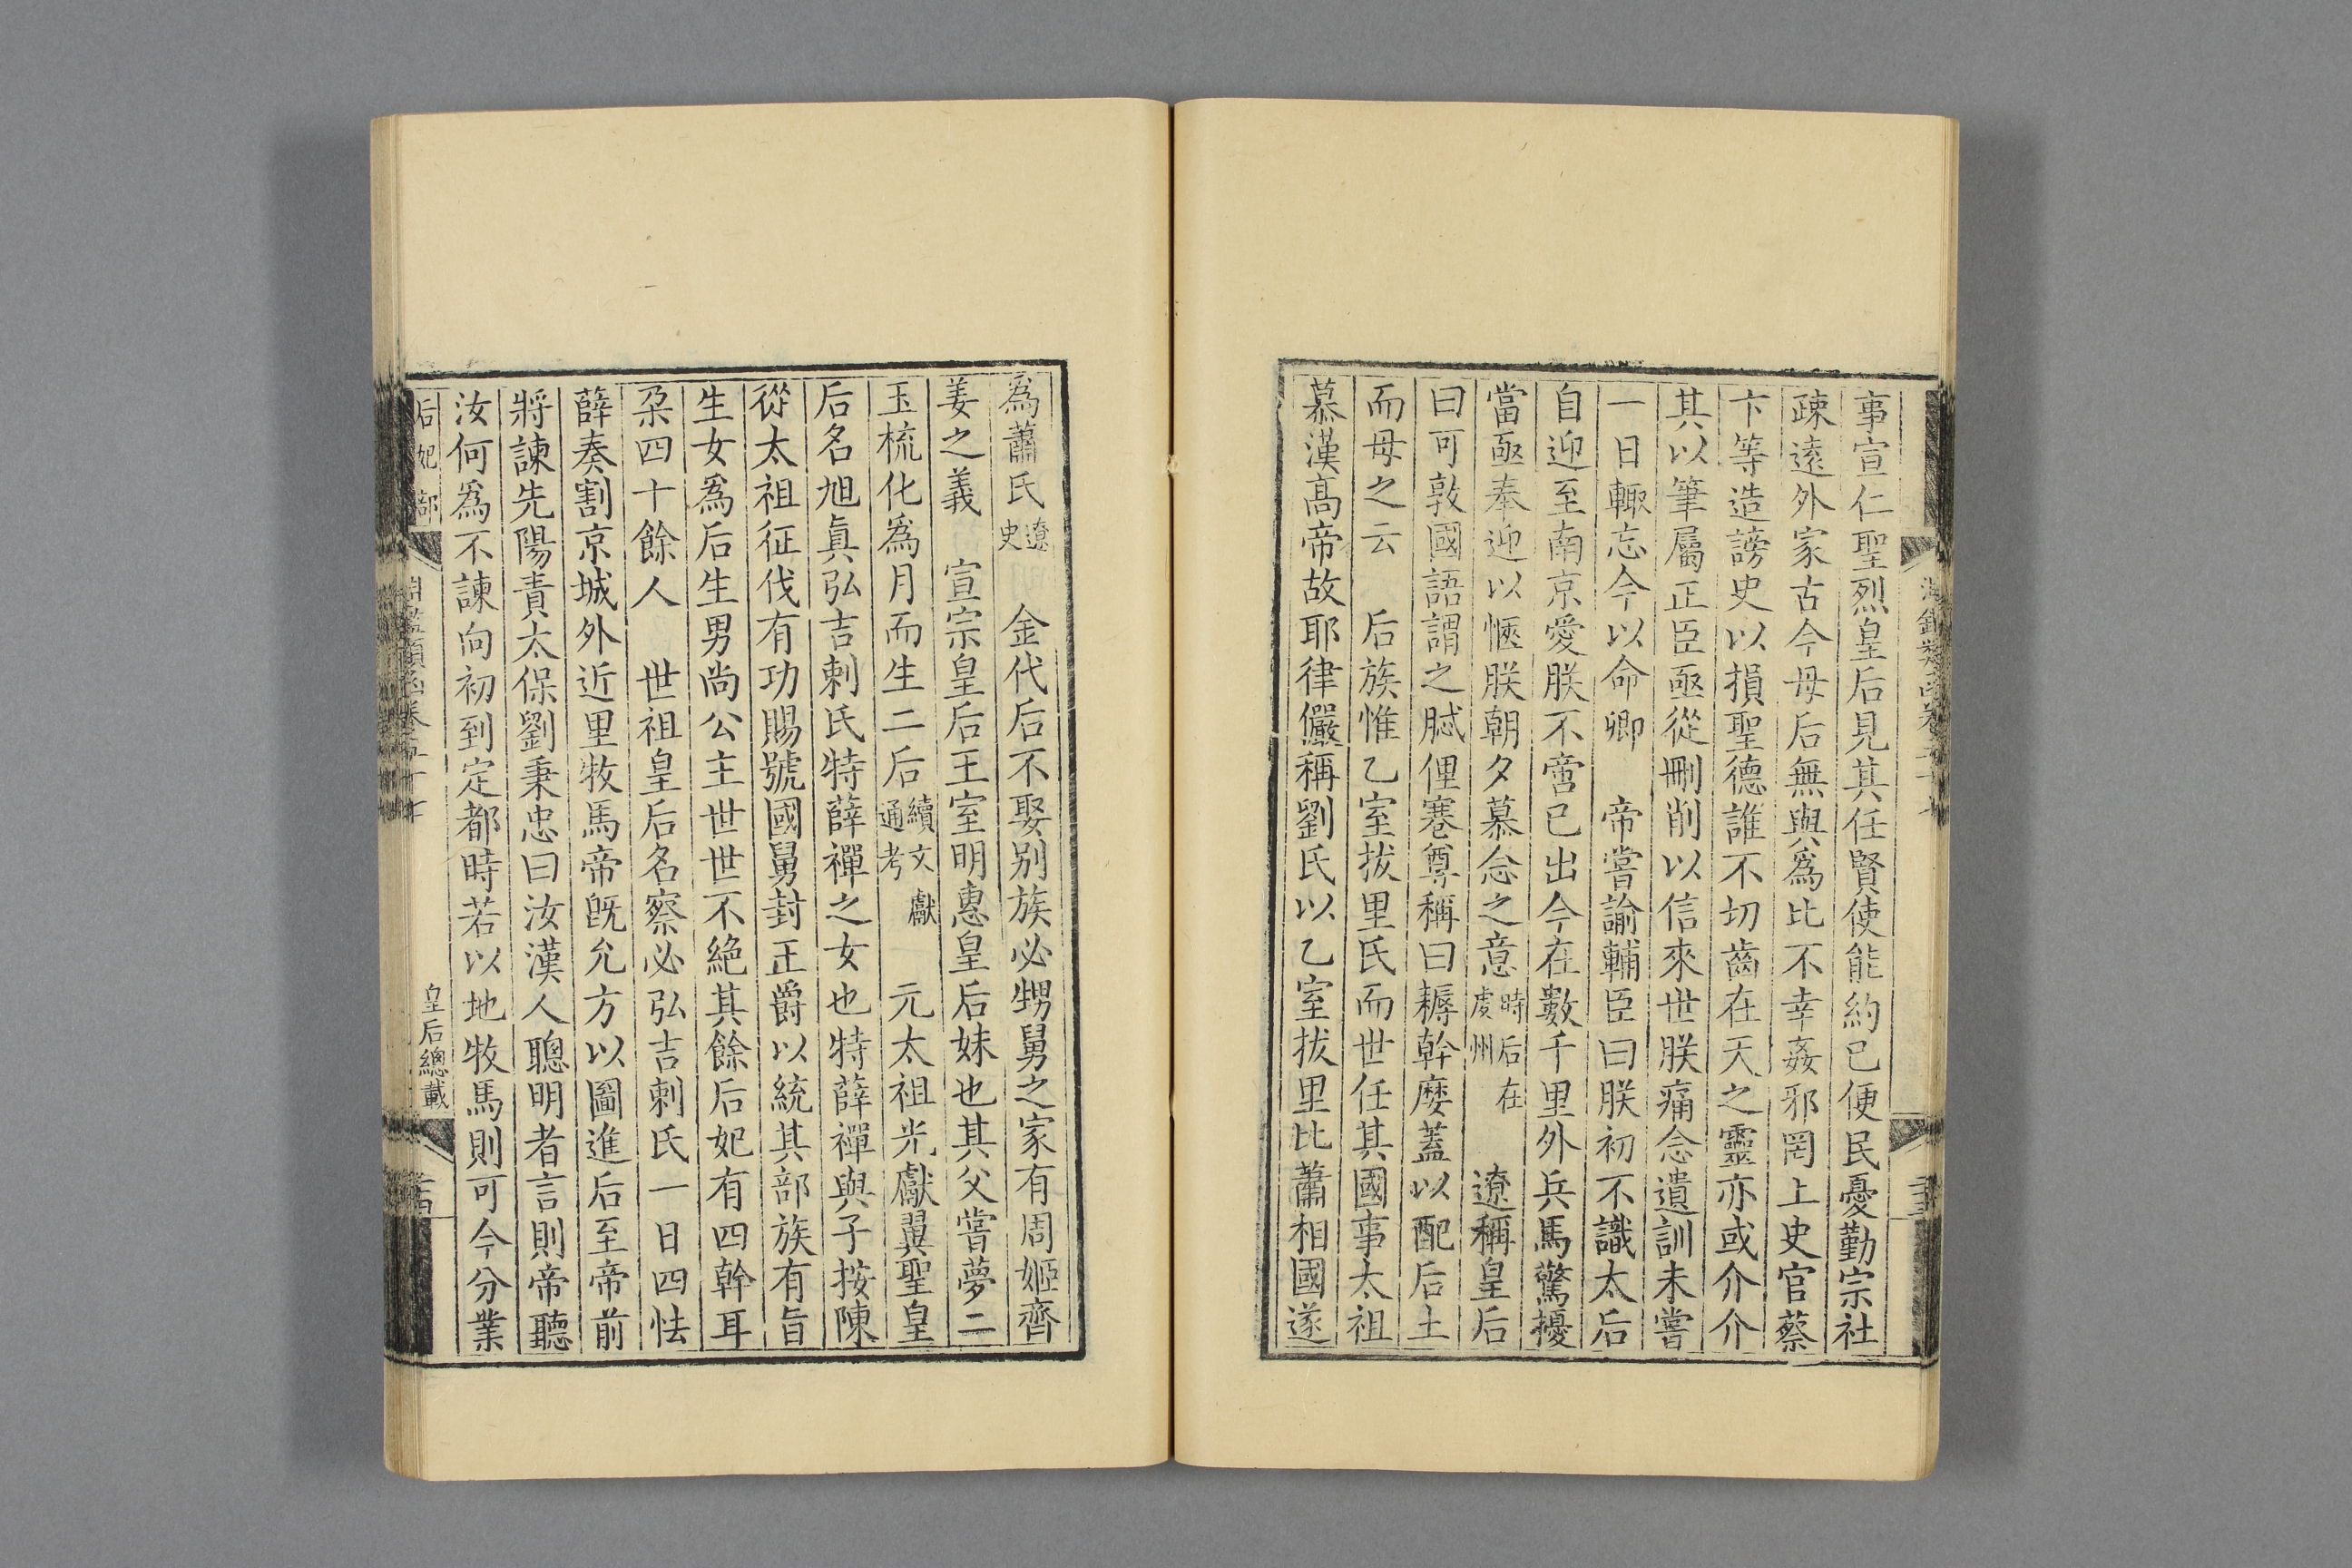 事宣仁聖烈皇后見其任賢使能約已便民憂勤宗社
疎遠外家古今母后無與爲比不幸姦邪罔上史官蔡
卞等造謗史以損聖德誰不切齒在天之靈亦或介介
其以筆屬正臣亟從刪削以信來世朕痛念遺訓未嘗
一日輙忘今以命卿　帝嘗諭輔臣曰朕初不識太后
自迎至南京愛朕不啻已出今在數千里外兵馬驚擾
當亟奉迎以愜朕朝夕慕念之意時后在虔州　遼稱皇后
曰可敦國語謂之脦俚寋尊稱曰耨斡麽蓋以配后土
而母之云　后族惟乙室拔里氏而世任其國事太祖
慕漢高帝故耶律儼稱劉氏以乙室拔里比蕭相國遂
爲蕭氏遼史　金代后不娶别族必甥舅之家有周姬齊
姜之義　宣宗皇后王室明惠皇后妹也其父嘗夢二
玉梳化爲月而生二后續文獻通考　元太祖光獻翼聖皇
后名旭眞弘吉剌氏特薛禪之女也特薛禪與子按陳
從太祖征伐有功賜號國舅封王爵以統其部族有旨
生女爲后生男尚公主世世不絶其餘后妃有四斡耳
朶四十餘人　世祖皇后名察必弘吉剌氏一日四怯
薛奏割京城外近里牧馬帝旣允方以圖進后至帝前
將諫先陽責太保劉秉忠曰汝漢人聰明者言則帝聽
汝何爲不諫向初到定都時若以地牧馬則可今分業
后妃部
皇后總載